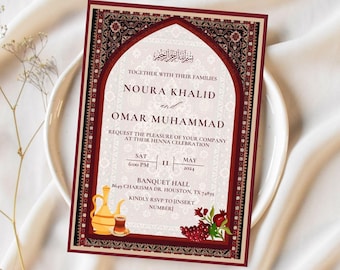 TOGETHER WITH THEIR FAMILIES
NOURA KHALID
and
OMAR MUHAMMAD
REQUEST THE PLEASURE OF YOUR COMPANY
AT THEIR HENNA CELEBRATION
SAT 11 MAY
6:00 PM 2024
BANQUET HALL
8649 CHARISMA DR. HOUSTON, TX 77251
KINDLY RSVP TO [INSERT
NUMBER]